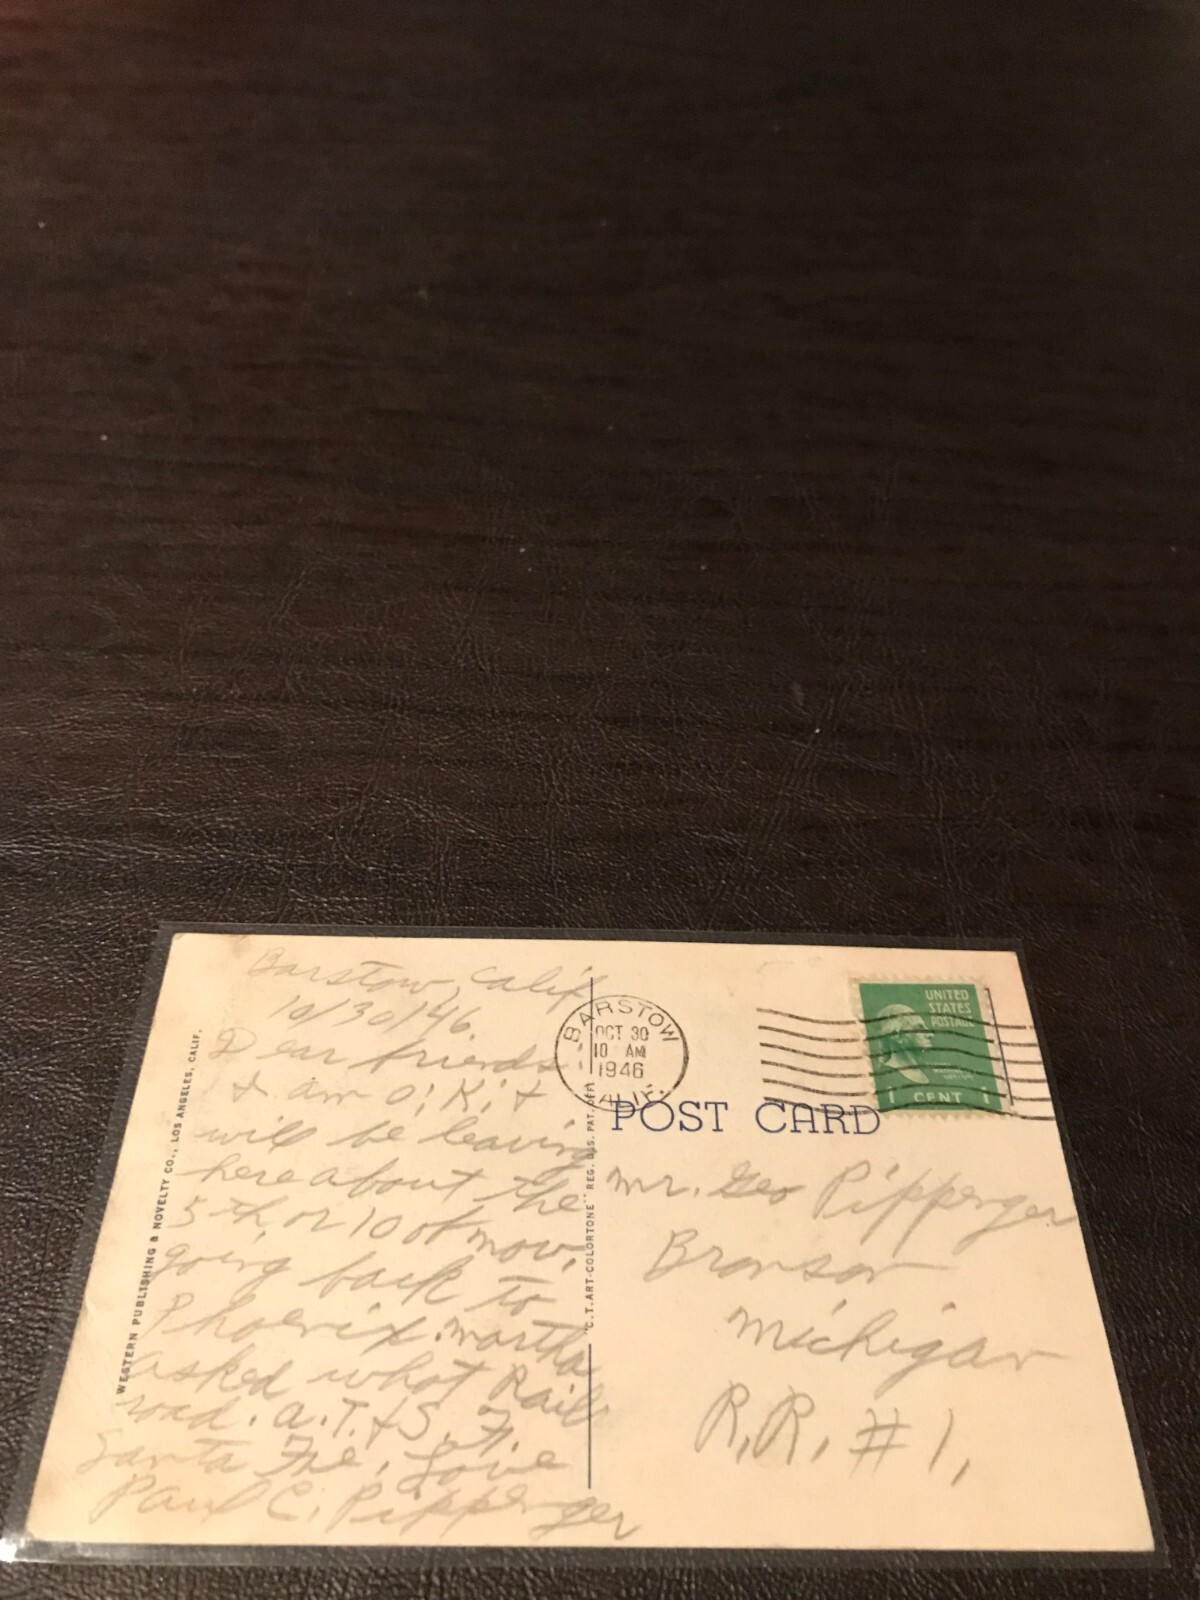 Barstow, Calif
10/30/46.
Dear friends
I am O.K. &
will be leaving
here about the
5th, or 10 of Nov.
going back to
Phoenix. Martha
asked what Rail
road. A.T. & S. F.
Santa Fe, Love
Paul C. Pippenger
WESTERN PUBLISHING & NOVELTY CO., LOS ANGELES, CALIF.
"C.T. ART-COLORTONE" REG. U.S. PAT. OFF.
BARSTOW
OCT 30
10 AM
1946
CALIF.
UNITED
STATES
POSTAGE
1 CENT 1
POST CARD
Mr. Geo Pippenger
Bronson
Michigan
R.R. #1,